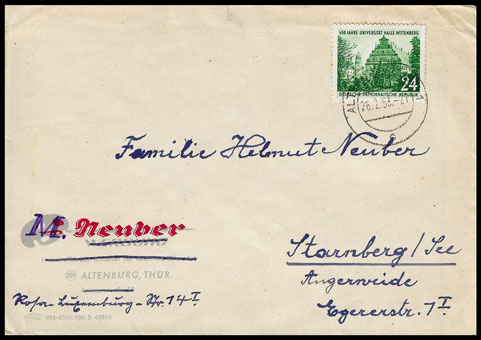 450 JAHRE UNIVERSITÄT HALLE-WITTENBERG
24
DEUTSCHE DEMOKRATISCHE REPUBLIK
26.2.53.-21
Familie Helmut Neuber
M. Neuber
WERBUNG
ALTENBURG, THÜR.
Rosa-Luxemburg-Str. 14 I
Starnberg/See
Angerweide
Egererstr. 7 I